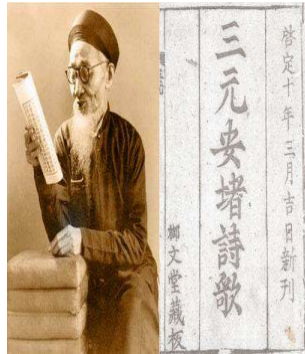 啓定十年三月吉日新刊
三元安堵詩歌
柳文堂藏板